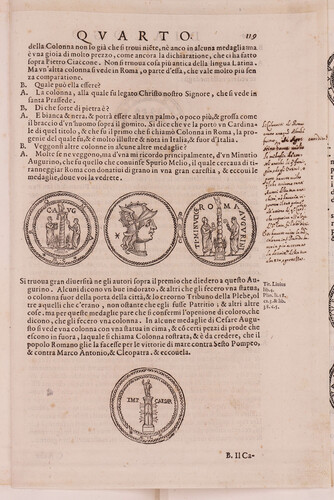 QVARTO. 119
della Colonna non lo già che si troui niéte, nè anco in alcuna medaglia: ma
è vna gioia di molto prezzo, come ancora la dichiaratione, che ci ha fatto
sopra Pietro Ciaccone. Non si truoua cosa più antica della lingua Latina.
Ma vn'altra colonna si vede in Roma, o parte d'essa, che vale molto più sen
za comparatione.
B. Quale può ella essere?
A. La colonna, alla quale fu legato Christo nostro Signore, che si vede in
santa Prassede.
B. Di che sorte di pietra è?
A. E bianca & nera, & potrà essere alta vn palmo, o poco più, & grossa come
il braccio d'vn'homo sopra il gomito. Si dice che ve la portò vn Cardina
le di quel titolo, & che fu il primo che si chiamò Colonna in Roma, la pro-
genie del quale fu, & è molto illustre & nota in Italia, & fuor d'Italia.
B. Veggonsi altre colonne in alcune altre medaglie?
A. Molte se ne veggono, ma d'vna mi ricordo principalmente, d'vn Minutio
Augurino, che fu quello che conuinse Spurio Melio, il quale cercaua di ti-
ranneggiar Roma con donatiui di grano in vna gran carestia, & eccoui le
medaglie, doue voi la vedrete.
CA VG
ROMA
TI MINVCI C F
AVGVRINI
Si truoua gran diuersità ne gli autori sopra il premio che diedero a questo Au-
gurino. Alcuni dicono vn bue indorato, & altri che gli fecero vna statua
o colonna fuor della porta della città, & lo creorno Tribuno della Plebe, ol
tre aquelli che c'erano, non ostante che egli fusse Patritio; & altri altre
cose. ma per queste medaglie pare che si confermi l'openione di coloro, che
dicono, che gli fecero vna colonna. In alcune medaglie di Cesare Augu-
sto si vede vna colonna con vna statua in cima, & cō certi pezzi di prode che
escono in fuora, laquale si chiama Colonna rostrata, & è da credere, che il
popolo Romano glie la facesse per le vittorie di mare contro Sesto Pompeo,
& contro Marco Antonio, & Cleopatra. & eccouela.
Tit. Liuius
lib. 4.
Plin. li. 18.
IMP. CAESAR
B. Il Ca-